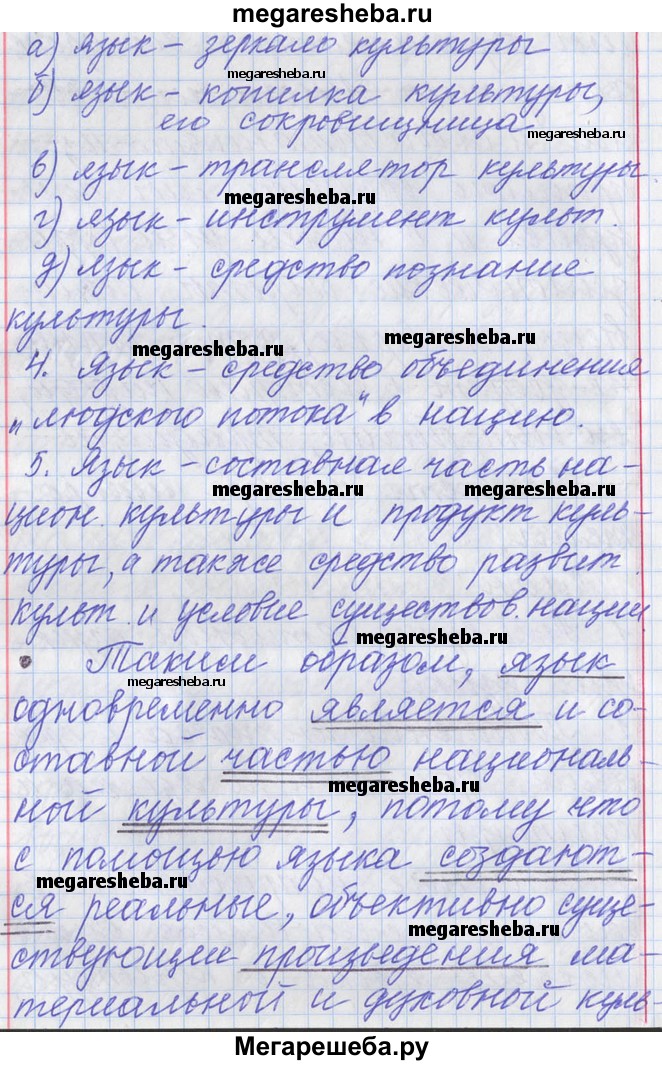 megaresheba.ru
а) язык – зеркало культуры
megaresheba.ru
б) язык – копилка культуры,
его сокровищница
megaresheba.ru
в) язык – транслятор культуры.
megaresheba.ru
г) язык – инструмент культ.
д) язык – средство познание
культуры.
megaresheba.ru
megaresheba.ru
4. Язык – средство объединения
„людского потока“ в нацию.
5. Язык – составная часть на-
megaresheba.ru
megaresheba.ru
цион. культуры и продукт куль-
туры, а также средство развит.
культ. и условие существов. нации
megaresheba.ru
Таким образом, язык
megaresheba.ru
одновременно является и со-
ставной частью националь-
megaresheba.ru
ной культуры, потому что
с помощью языка создают-
megaresheba.ru
ся реальные, объективно суще-
megaresheba.ru
ствующие произведения ма-
териальной и духовной куль
Мегарешеба.ру